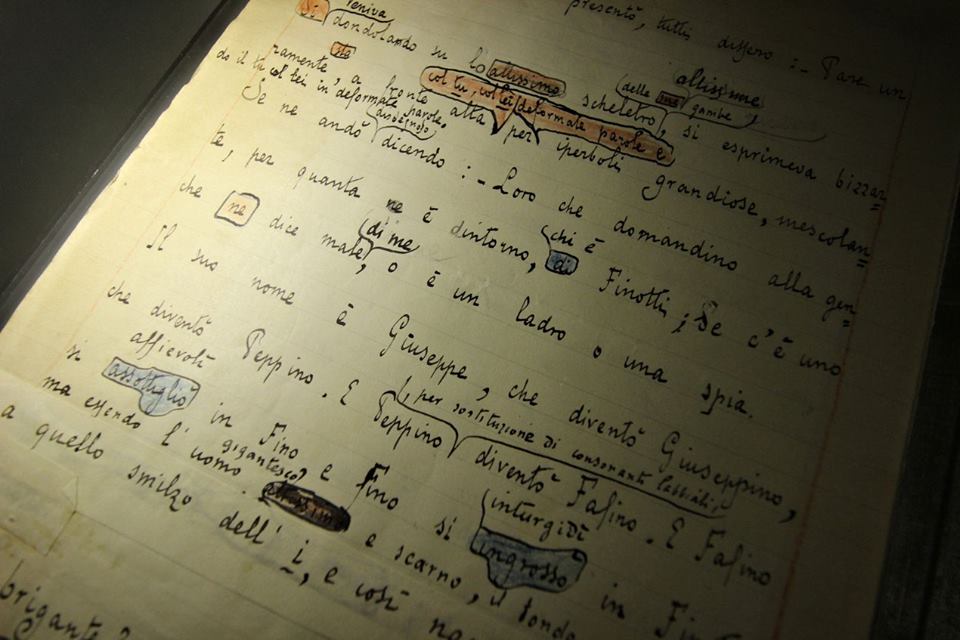 presentò, tutti dissero :- Pare un
veniva altissime
Si dondolando su lo altissimo scheletro, delle sue gambe si esprimeva bizzar=
ramente, sta a fronte alta col tu, col lei, deformate parole e per iperboli grandiose, mescolan=
do il tu col lei in deformate parole.
Se ne andò dicendo :- Loro che domandino alla gen=
te, per quanta ne è dintorno, chi è di Finotti; Se c'è uno
che ne dice male, di me o è un ladro o una spia.
Il suo nome è Giuseppe, che diventò Giuseppino,
, per sostituzione di consonanti labiali,
che diventò Peppino. E Peppino diventò Fafino. E Fafino
affievolì inturgidì
si assottigliò in Fino e Fino si ingrossò in
gigantesco,
ma essendo l'uomo altissimo e scarno, il tondo
a quello smilzo dell' i, e così
brigante?